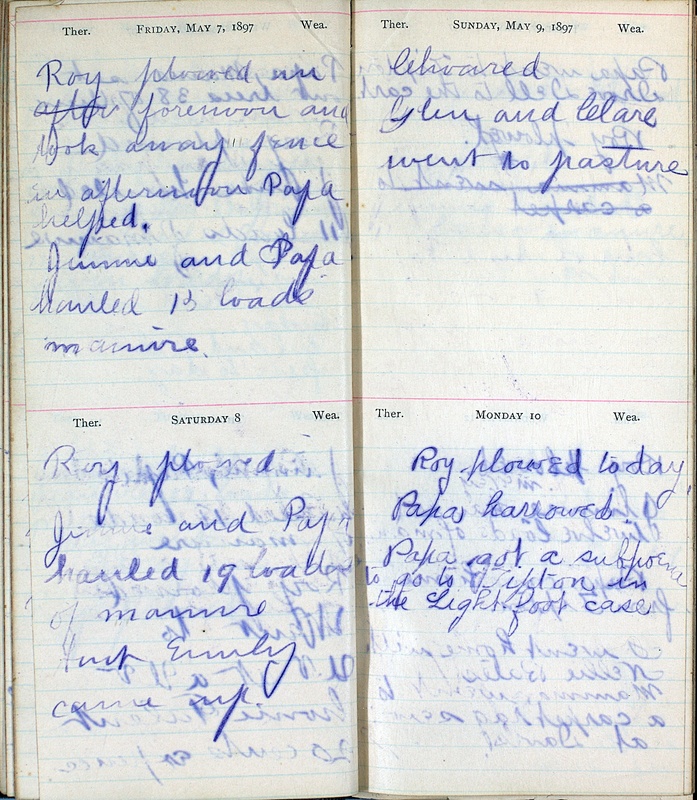 Ther. FRIDAY, MAY 7, 1897 Wea.
Roy plowed in
after forenoon and
took away fence
in afternoon Papa
helped.
Jimmie and Papa
hauled 13 loads
manure.
Ther. SATURDAY 8 Wea.
Roy plowed
Jimmie and Papa
hauled 19 loads
of manure
Aunt Emily
came up
Ther. SUNDAY, MAY 9, 1897 Wea.
Choared
Glen and Clare
went to pasture
Ther. MONDAY 10 Wea.
Roy plowed today
Papa harrowed
Papa got a subpoena
to go to Tipton in
the Lightfoot case